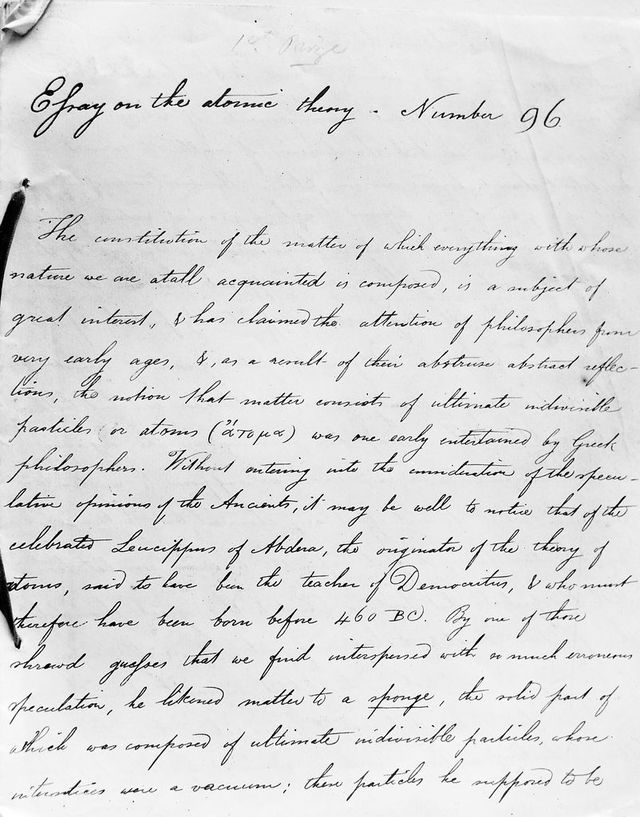 1st Prize
Eſsay on the atomic theory - Number 96
The constitution of the matter of which everything with whose
nature we are atall acquainted is composed, is a subject of
great interest, & has claimed the attention of philosophers from
very early ages, &, as a result of their abstruse abstract reflec-
tions, the notion that matter consists of ultimate indivisible
particles or atoms (ἄτομα) was one early entertained by Greek
philosophers. Without entering into the consideration of the specu-
lative opinions of the Ancients, it may be well to notice that of the
celebrated Leucippus of Abdera, the originator of the theory of
atoms, said to have been the teacher of Democritus, & who must
therefore have been born before 460 BC. By one of those
shrewd gueſses that we find interspersed with so much erroneous
speculation, he likened matter to a sponge, the solid part of
which was composed of ultimate indivisible particles, whose
interstices were a vacuum; these particles he supposed to be